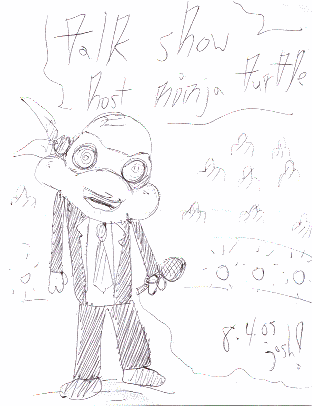 Talk show
host ninja turtle
8.4.05
Josh!